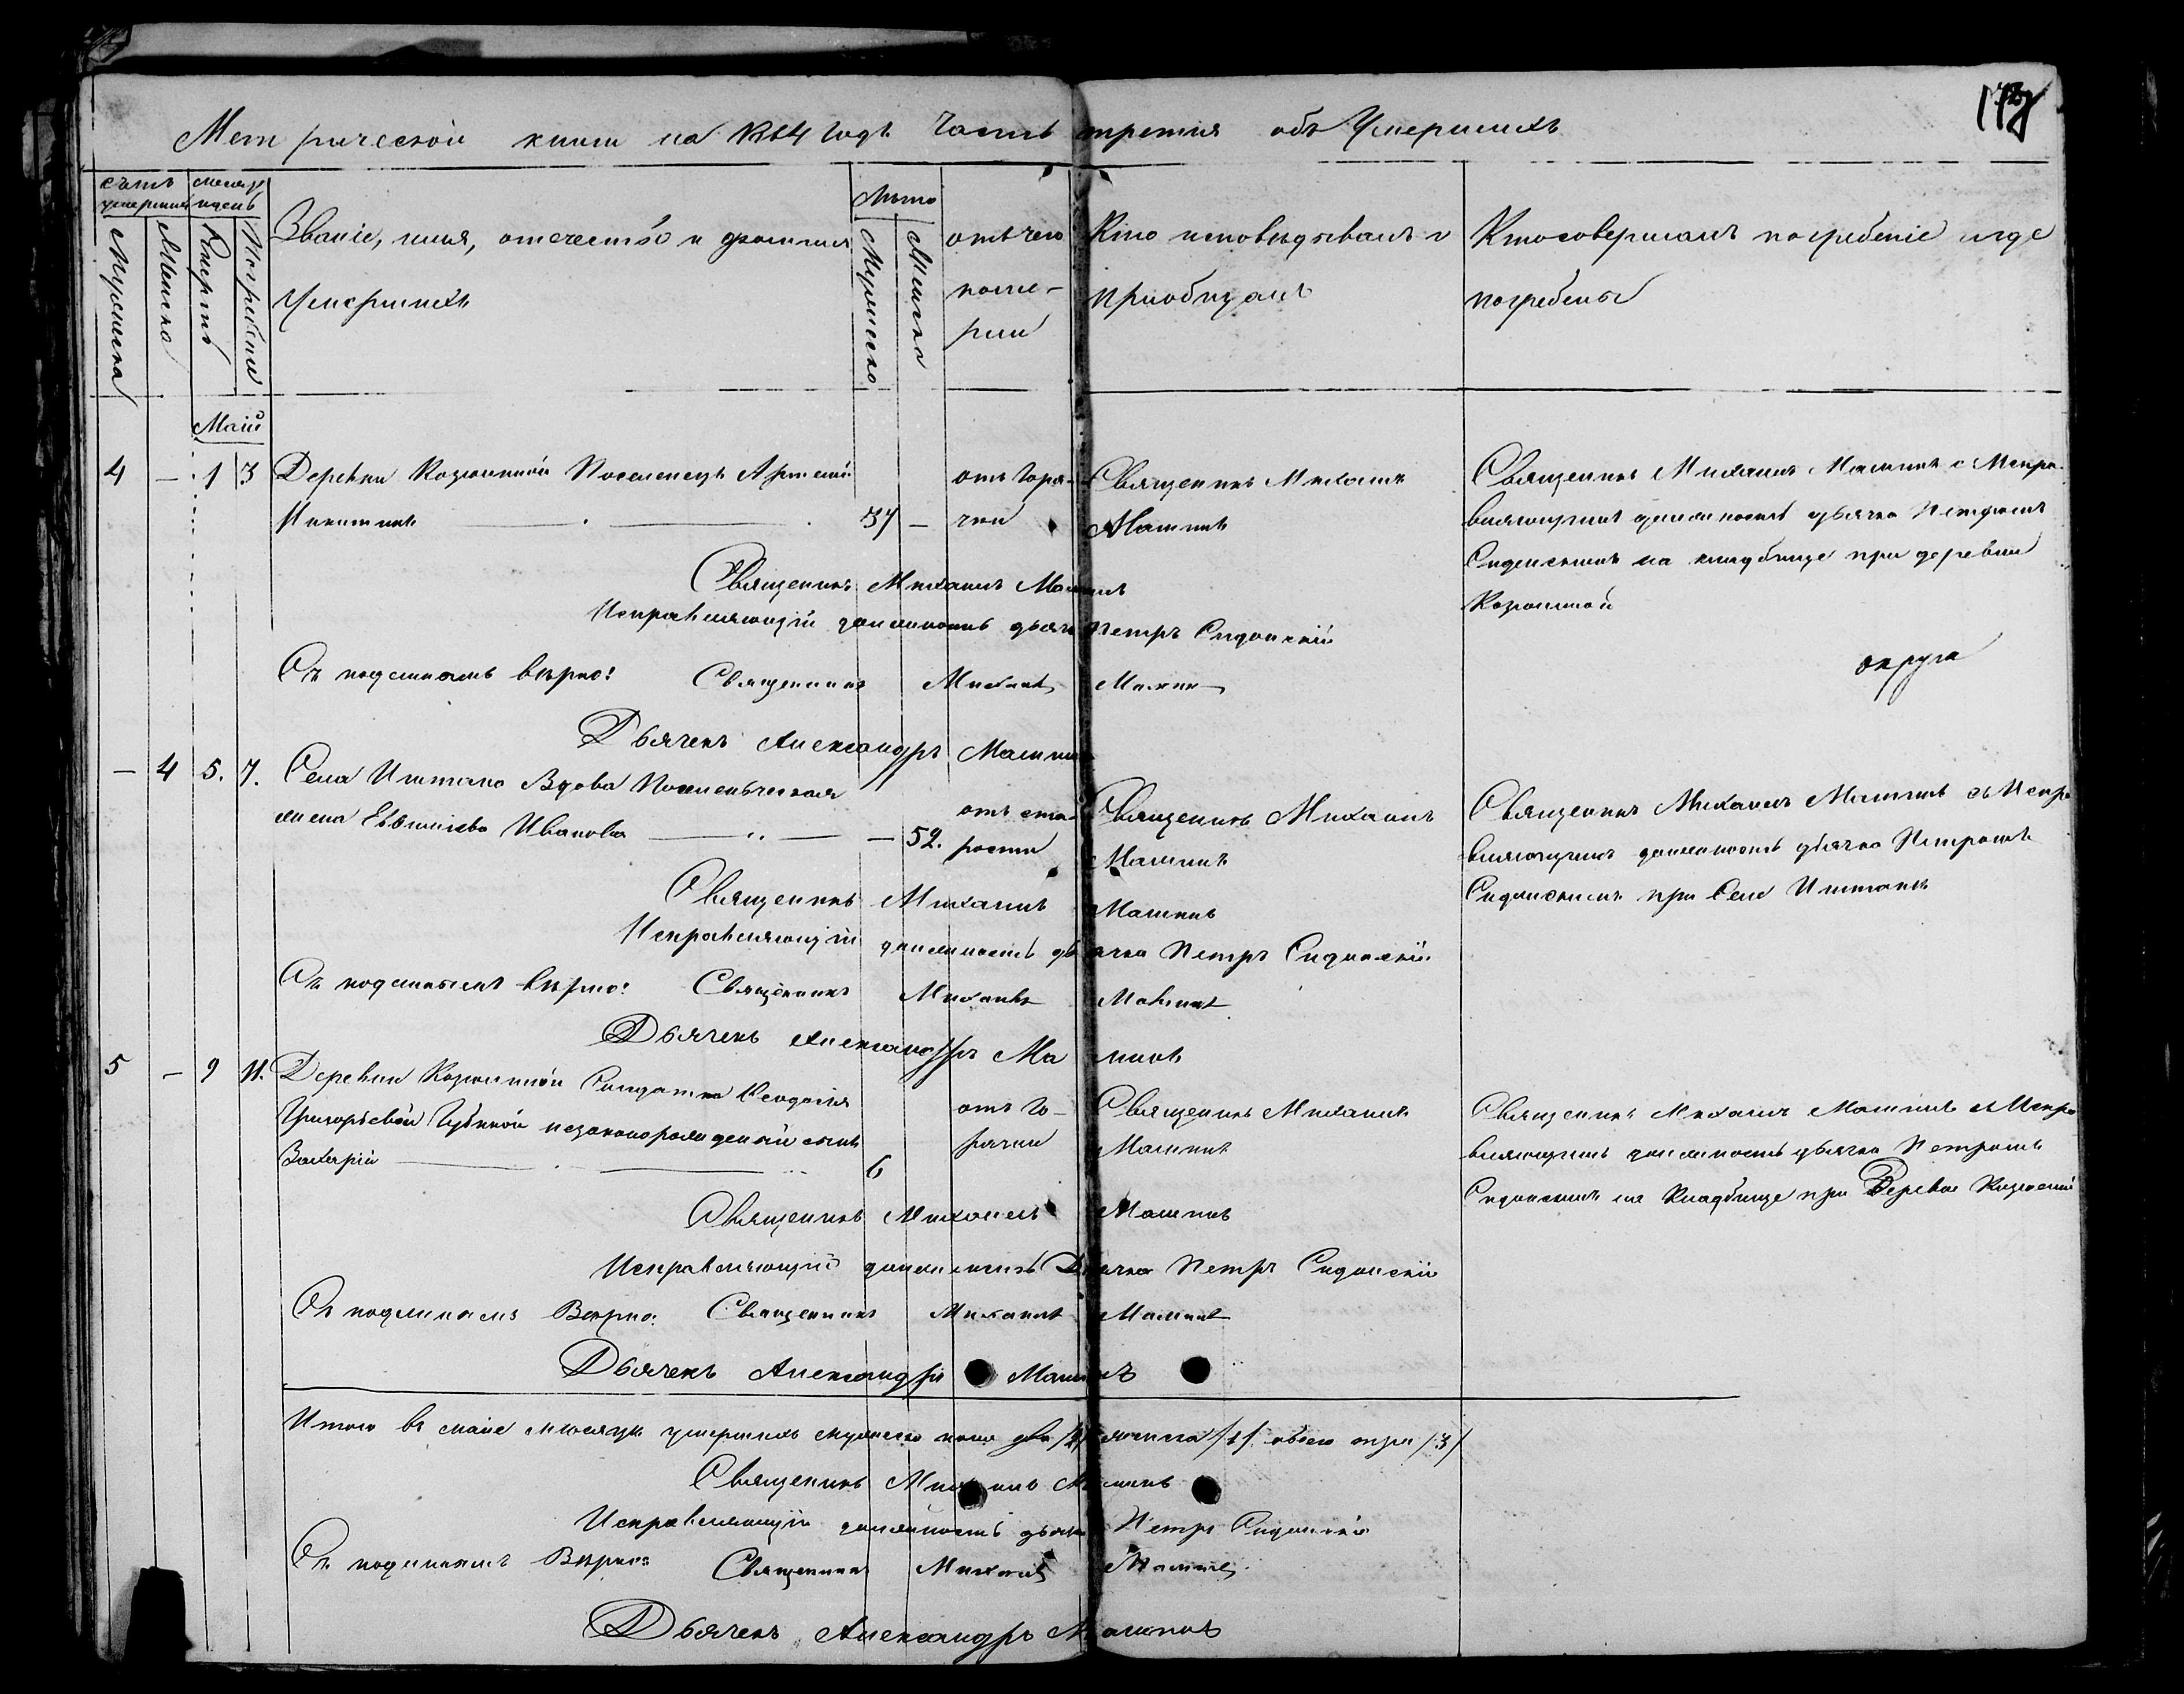 Метрической книги на 1864 годъ часть третія объ Умершихъ
счетъ умершихъ
месяцъ и день
Мужеска
Женска
Смерти
Погребенія
Званіе, имя, отечество и фамилія
Умершихъ
Лѣто
Мужеско
Женска
отъ чего
поме-
рли
Кто исповѣдывалъ и
пріобщалъ
Кто совершалъ погребеніе и где
погребены
Маій
4 – 1 3 Деревни Поселенецъ
Никитинъ 37 –
отъ горя-
чки
Священникъ Михаилъ
Машинъ
Священникъ Михаилъ Машинъ с Испра-
вляющимъ должность дьячка Петромъ
на кладбище при деревни
Священникъ Михаилъ Машинъ
Исправляющій должность дьячка Петръ
Съ подлинымъ вѣрно: Священникъ Михаилъ Машинъ
округа
Дьячекъ Александръ Машинъ
– 4 5. 7. Села Иштана Вдова Поселенческая
жена Иванова – 52.
отъ ста-
рости
Священникъ Михаилъ
Машинъ
Священникъ Михаилъ Машинъ съ Испра-
вляющимъ должность дьячка Петромъ
при Селе Иштанъ
Священникъ Михаилъ Машинъ
Исправляющій должность дьячка Петръ
Съ подлинымъ вѣрно: Священникъ Михаилъ Машинъ
Дьячекъ Александръ Машинъ
5 – 9 11. Деревни Солдатка Ѳеодосія
Григорьевой незаконорожденый сынъ
6
отъ го-
рячки
Священникъ Михаилъ
Машинъ
Священникъ Михаилъ Машинъ съ Испра-
вляющимъ должность дьячка Петромъ
на Кладбище при Деревне
Священникъ Михаилъ Машинъ
Исправляющій должность Дьячка Петръ
Съ подлинымъ Вѣрно: Священникъ Михаилъ Машинъ
Дьячекъ Александръ Машинъ
Итого въ маіе месяцѣ умершихъ мужеска пола два /2/ женска /1/ обоего три /3/
Священникъ Михаилъ Машинъ
Исправляющій должность дьячка Петръ
Съ подлинымъ Вѣрно: Священникъ Михаилъ Машинъ
Дьячекъ Александръ Машинъ